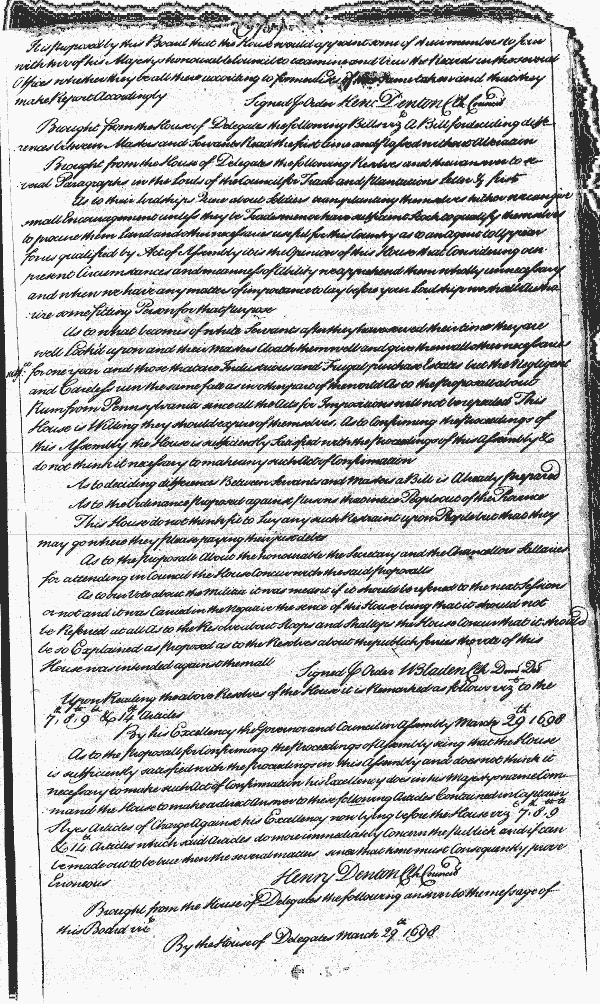 It is proposed by this Board that the House would appoint some of their members to joyn
with two of his Majestys honourable Council to examine and view the Records in the several
Offices whether they be all there according to former Lists of the same taken and that they
make Report Accordingly
Signed p Order Henr: Denton Clk Council
Brought from the House of Delegates the following Bills viz A Bill for deciding diffe
rences between Masters and Servants Read the first time and passed without Alteration
Brought from the House of Delegates the following Resolves and their answer to se
veral Paragraphs in the Lords of the Council for Trade and Plantations letter & first
As to their Lordships about Soldiers transplanting themselves hither we can give
small Encouragement unless they be Tradesmen or have sufficient Stock to qualify themselves
to procure them Land and other necessaries useful for this Country as to an Agent to Appear
for us qualified by Act of Assembly it is the Opinion of this House that Considering our
present Circumstances and meanness of Ability we apprehend them wholly unnecessary
and when we have any matter of importance to lay before your Lordships we shall Autho
rize some fitting Person for that purpose
As to what becomes of white Servants after they have served their time they are
well Look'd upon and their Masters Cloath them well and give them all other necessaries
for one year and those that are Industrious and Frugal purchase Estates but the Negligent
and Careless run the same fate as in other parts of the world As to the proposall about
Rum from Pennsylvania since all the Acts for Impositions will not be repealed This
House is Willing they should expire of themselves. As to Confirming the Proceedings of
this Assembly the House is sufficiently Satisfied with the Proceedings of this Assembly & so
do not think it necessary to make any such Act of Confirmation
As to deciding difference Between Servants and Masters a Bill is Already prepared
As to the Ordinance proposed against persons that entice People out of this Province
This House do not think fit to Lay any such Restraint upon People but that they
may go where they please paying their just debts
As to the proposals About the honourable the Secretary and the Chancellors Sallaries
for attending in Council the House Concur with the said proposalls
As to our Vote about the Militia it was meant if it should be referred to the next Session
or not and it was Carried in the Negative the sence of this House being that it should not
be Referred at all As to the Resolve about Sloops and Shallops the House Concur that it should
be so Explained as proposed as to the Resolves about the publick ferries the vote of this
House was intended against them all
Signed p Order W Bladen Clk Dom Del
Upon Reading the above Resolves of the House it is Remarked as follows viz to the
7th 8th 9th & 14th Articles
By his Excellency the Governor and Council in Assembly March 29th 1698
As to the Proposall for Confirming the Proceedings of Assembly seeing that the House
is sufficiently satisfied with the proceedings in this Assembly and does not think it
necessary to make such Act of Confirmation his Excellency does in his Majestys name Com-
mand the House to make a direct Answer to these following Articles Contained in Captain
Slyes Articles of Charge Against his Excellency now lying before the House viz 6th 7th 8th 9th
& 14th Articles which said Articles do more immediately Concern the publick and if can
be made out to be true then the several matters since that time must Consequently prove
Erroneous
Henry Denton Clk Council
Brought from the House of Delegates the following answer to the message of
this Board viz
By the House of Delegates March 29th 1698